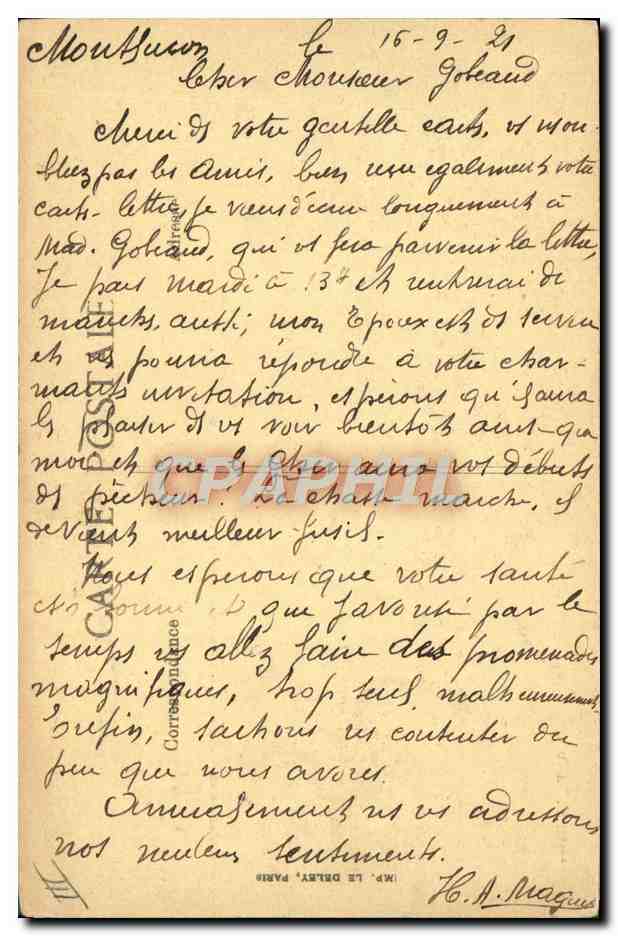 le 16-9-21
Cher Monsieur Gobeaud
Merci de votre gentille carte, vs n'ou-
bliez pas les Amis, bien reçu egalement votre
carte-lettre, je viens d'ecrire longuement à
Mad. Gobeaud, qui vs fera parvenir la lettre,
Je pars mardi à 13h et rentrerai de
aussi, mon Epoux est de
et vs pourra répondre à votre char-
mante invitation, espérons qu'il aura
le plaisir de vs voir bientôt ainsi que
moi et que le cher ami vos débuts
de pêcheur! La chasse marche, il
devient meilleur fusil.
Nous esperons que votre santé
est bonne et que favorisé par le
temps vs allez faire des promenades
magnifiques, trop seul malheureusement
enfin, sachons ns contenter du
peu que nous avons.
Amicalement ns vs adressons
nos meilleurs sentiments.
H. A.
CARTE POSTALE
Correspondance
Adresse
IMP. LE DELEY, PARIS
CPAPHIL